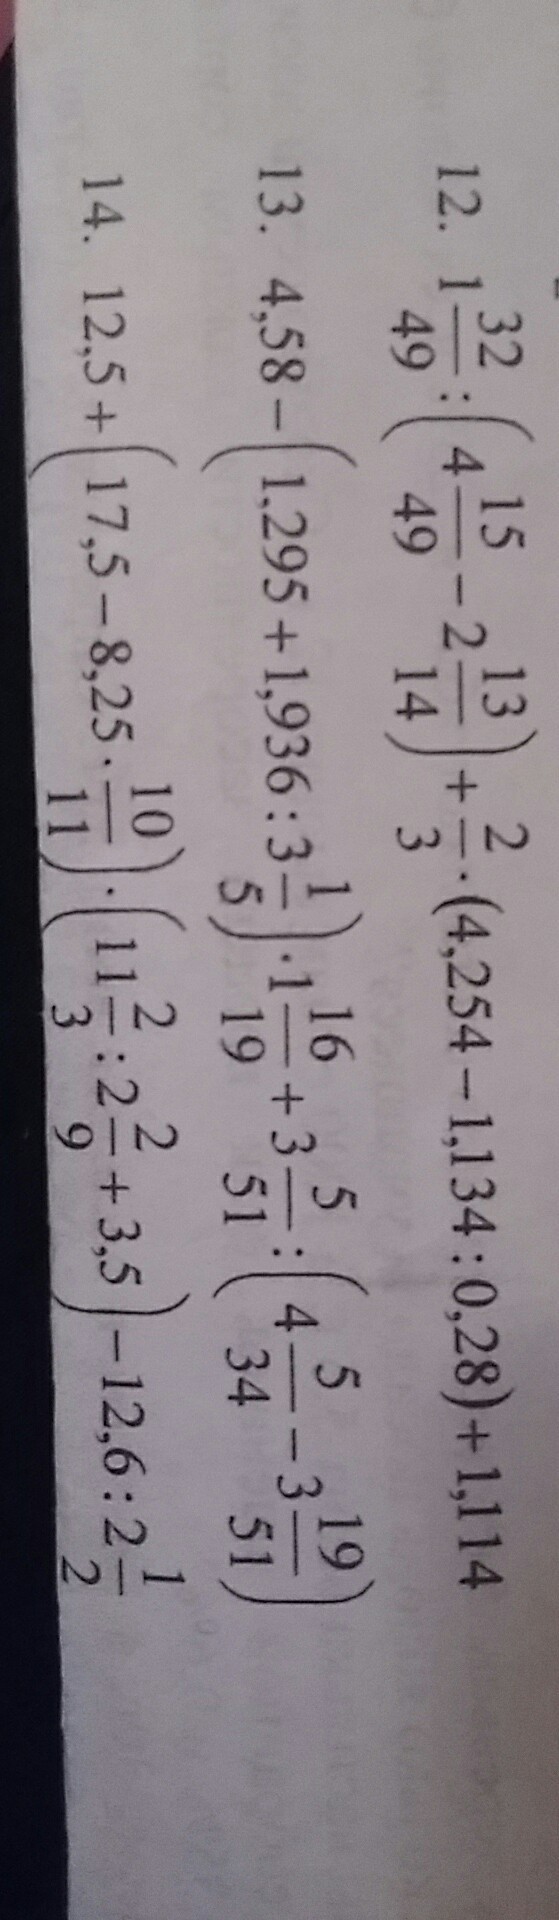 12. 1 32/49 : (4 15/49 − 2 13/14) + 2/3 · (4,254 − 1,134 : 0,28) + 1,114
13. 4,58 − (1,295 + 1,936 : 3 1/5) · 1 16/19 + 3 5/51 : (4 5/34 − 3 19/51)
14. 12,5 + (17,5 − 8,25 · 10/11) · (11 2/3 : 2 2/9 + 3,5) − 12,6 : 2 1/2